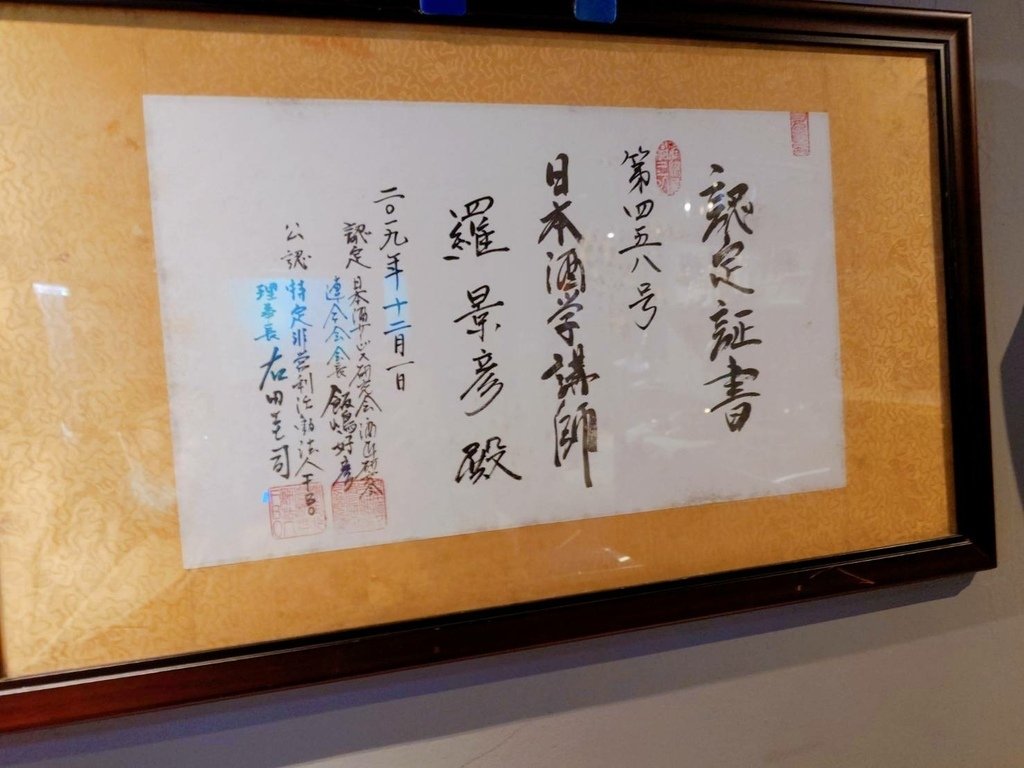 認定証書
第四五八号
日本酒学講師
羅景彦殿
二〇一九年十二月一日
認定 日本酒サービス研究会酒匠研究
連合会会長 飯嶋好彦
公認 特定非営利活動法人
理事長 右田圭司